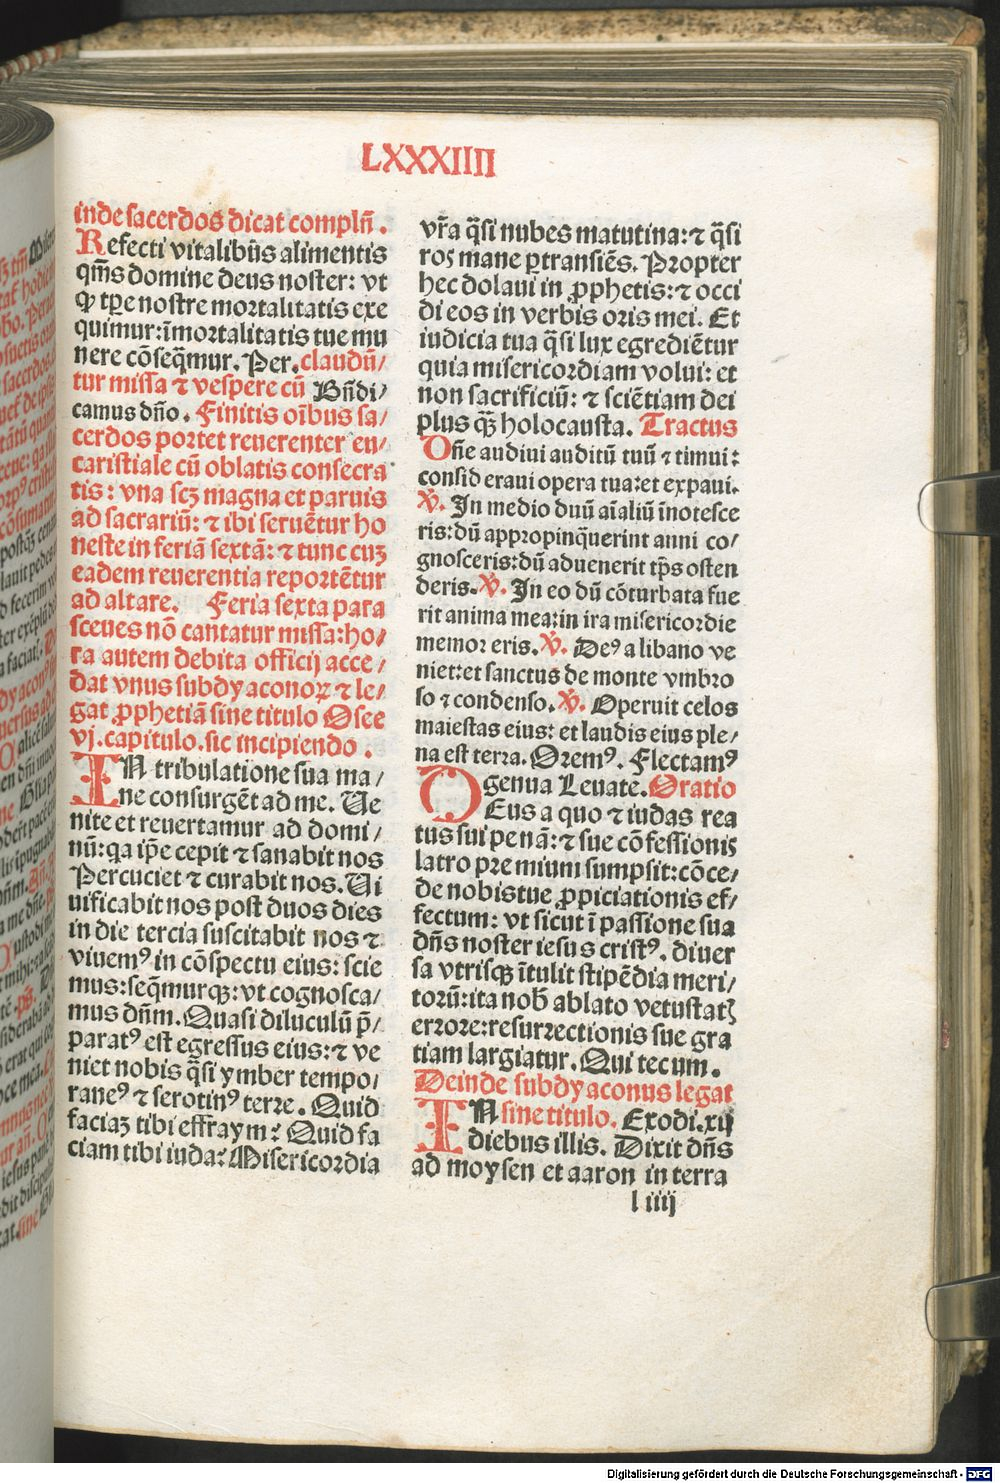 LXXXIIII
inde sacerdos dicat complñ.
Refecti vitalibũs alimentis
qm̃s domine deus noster: vt
ꝙ tꝑe nostre mortalitatis exe
quimur: ĩmortalitatis tue mu
nere cõseq̃mur. Per. claudũ/
tur missa ⁊ vespere cũ Bñdi/
camus dño. Finitis oĩbus sa/
cerdos portet reuerenter eu/
caristiale cũ oblatis consecra
tis: vna scꝫ magna et paruis
ad sacrariũ: ⁊ ibi seruẽtur ho
neste in feriã sextã: ⁊ tunc cuꝫ
eadem reuerentia reportẽtur
ad altare. Feria sexta para
sceues nõ cantatur missa: ho/
ra autem debita officij acce/
dat vnus subdyaconoꝝ ⁊ le/
gat ꝓphetiã sine titulo Osee
vj. capitulo. sic incipiendo.
IN tribulatione sua ma/
ne consurgẽt ad me. Ue
nite et reuertamur ad domi/
nũ: qa ip̃e cepit ⁊ sanabit nos
Percuciet ⁊ curabit nos. Ui
uificabit nos post duos dies
in die tercia suscitabit nos ⁊
viuemꝰ in cõspectu eius: scie
mus: seq̃murqꝫ: vt cognosca/
mus dñm. Quasi diluculũ p̃/
paratꝰ est egressus eius: ⁊ ve
niet nobis q̃si ymber tempo/
raneꝰ ⁊ serotinꝰ terre. Quid
faciaꝫ tibi effraym: Quid fa
ciam tibi iuda: Misericordia
vr̃a q̃si nubes matutina: ⁊ q̃si
ros mane ꝑtransiẽs. Propter
hec dolaui in ꝓphetis: ⁊ occi
di eos in verbis oris mei. Et
iudicia tua q̃si lux egrediẽtur
quia misericordiam volui: et
non sacrificiũ: ⁊ sciẽtiam dei
plus qꝫ̃ holocausta. Tractus
Dñe audiui auditũ tuũ ⁊ timui:
consid eraui opera tua: et expaui.
℣. In medio duũ aĩaliũ ĩnotesce
ris: dũ appropinq̃uerint anni co/
gnosceris: dũ aduenerit tp̃s osten
deris. ℣. In eo dũ cõturbata fue
rit anima mea: in ira misericordie
memor eris. ℣. Deꝰ a libano ve
niet: et sanctus de monte vmbro
so ⁊ condenso. ℣. Operuit celos
maiestas eius: et laudis eius ple/
na est terra. Oremꝰ. Flectamꝰ
genua Leuate. Oratio
DEus a quo ⁊ iudas rea
tus sui penã: ⁊ sue cõfessionis
latro premium sumpsit: cõce/
de nobis tue ꝓpiciationis ef/
fectum: vt sicut ĩ passione sua
dñs noster iesus cristꝰ. diuer
sa vtrisqꝫ ĩtulit stipẽdia meri/
torũ: ita nob̃ ablato vetustatꝭ
errore: resurrectionis sue gra
tiam largiatur. Qui tecum.
Deinde subdyaconus legat
IN sine titulo. Exodi. xij
diebus illis. Dixit dñs
ad moysen et aaron in terra
l iiij
Digitalisierung gefördert durch die Deutsche Forschungsgemeinschaft - DFG